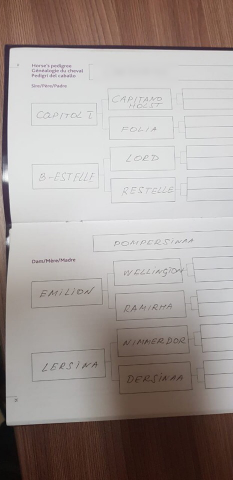 Horse's pedigree
Généalogie du cheval
Pedigrí del caballo
Sire/Père/Padre
CAPITANO
HOLST
CAPITOL I
FOLIA
LORD
B-ESTELLE
RESTELLE
Dam/Mère/Madre
WELLINGTON
EMILION
RAMIRHA
NIMMERDOR
LERSINA